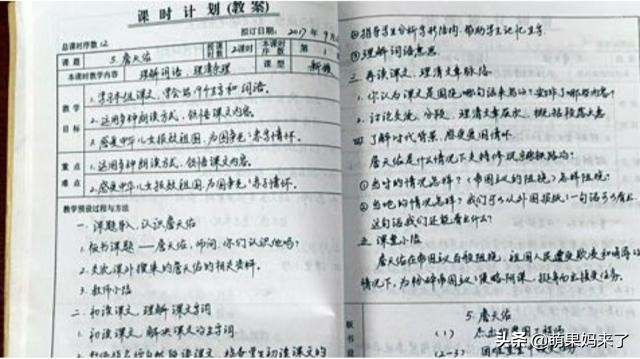 课时计划(教案)
总课时序数12
拟订日期: 2017年9月
课题 5.詹天佑 2课时 本课时序 第1
本课时教学内容 理解词语,理清条理 课型 新授
教学目标
1.学习本组课文,学会写9个生字和词语。
2.运用多种朗读方式,领悟课文内容。
3.感受中华儿女报效祖国,为国争光的赤子情怀。
重点难点
1.运用多种朗读方式,领悟课文内容。
2.感受中华儿女报效祖国,为国争光的赤子情怀。
教学预设过程与方法
一、课题导入,认识詹天佑
1.板书课题——詹天佑,师问,你们认识他吗?
2.交流课外搜集的詹天佑的相关资料。
3.教师小结
二、初读课文,理解课文字词
1.初读课文,解决课文的生字词
②指导学生分析字形结构,帮助学生记忆生字。
③理解词语意思。
三、再读课文,理清文章脉络。
1.你认为课文是围绕哪句话来写的?安排了哪些内容?
2.讨论交流,分段,理清文章层次,概括段落大意
四、了解时代背景,感受爱国情怀
詹天佑是什么情况下主持修筑京张铁路的?
①当时的情况怎样?(帝国主义的阻挠)怎样阻挠?
②当地的情况怎样?我们可以从外国报纸的一句话可以看出,
这句话我们还能看出什么?
五、课堂小结
詹天佑在帝国主义百般阻挠,祖国人民遭受欺辱和嘲弄的
情况下,为粉碎帝国主义侵略阴谋,挺身而出接受任务。
板书
5.詹天佑
(一) 杰出的爱国工程师
(二)
头条@萌果妈来了